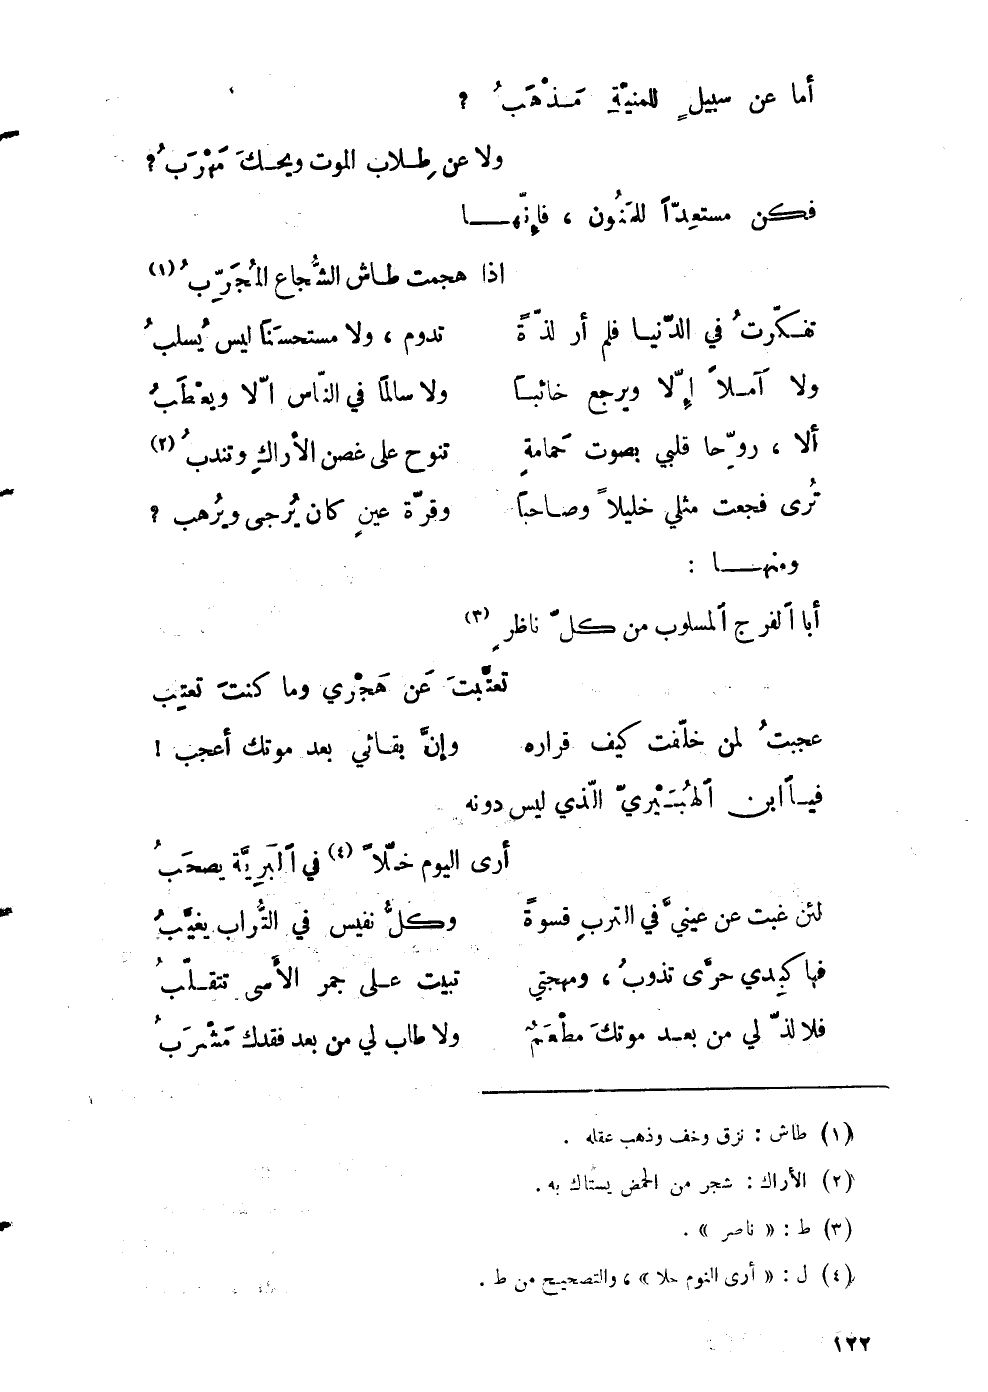 أما عن سبيلٍ للمنيّةِ مَذْهَبُ ؟
ولا عن طِلاب الموت ويحكَ مَهْرَبُ؟
فكن مستعِدّاً للمَنُون ، فإنّها
اذا هجمت طاش الشُّجاع المُجَرِّبُ (١)
تفكّرتُ في الدّنيا فلم أر لذّةً تدوم ، ولا مستحسَناً ليس يُسلبُ
ولا آمِلاً إلّا ويرجع خائباً ولا سالماً في النّاس الّا ويعْطَبُ
ألا ، روِّحا قلبي بصوت حَمامةٍ تنوح على غصن الأراكِ وتندبُ (٢)
تُرى فجعت مثلي خليلاً وصاحباً وقرّة عينٍ كان يُرجى ويُرهب ؟
ومنها :
أبا الفرج المسلوب من كلّ ناظرٍ (٣)
تعتَّبتَ عَن هَجْري وما كنتَ تعتِب
عجبتُ لمن خلّفت كيف قراره وإنَّ بقائي بعد موتك أعجب !
فيا ابن الهُبَيْريّ الّذي ليس دونه
أرى اليوم خلّاً (٤) في البَرِيَّة يصحَبُ
لئن غبت عن عينيَّ في التربِ قسوةً وكلُّ نفيس في التُّراب يغيَّبُ
فها كبِدي حرَّى تذوبُ ، ومهجتي تبيت على جمر الأَسى تتقلّبُ
فلا لذّ لي من بعد موتكَ مطْعَمٌ ولا طاب لي من بعد فقدك مَشْرَبُ
(١) طاش : نزق وخف وذهب عقله .
(٢) الأراك : شجر من الحمض يستاك به .
(٣) ط : « ناصر » .
(٤) ل : « أرى النوم حلا » ، والتصحيح من ط .
١٢٢